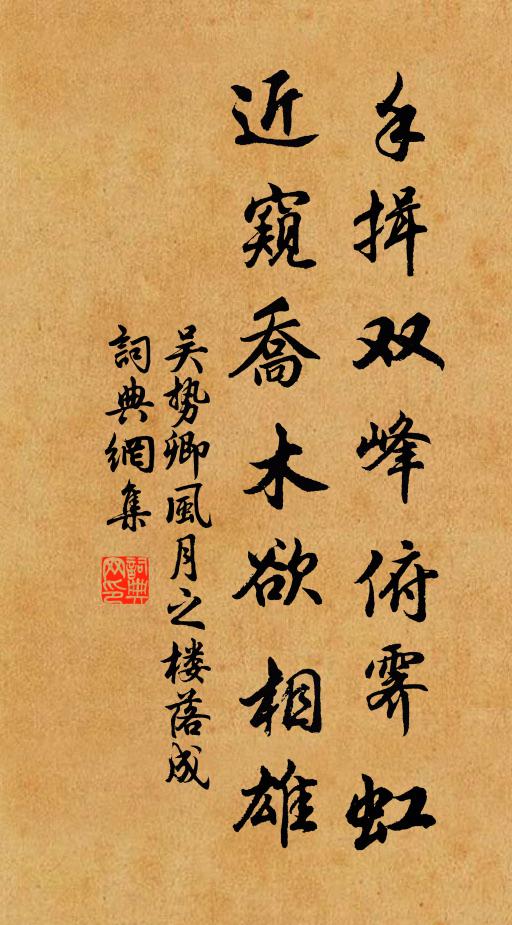 手揖双峰俯霁虹
近窥乔木欲相雄
吴势卿風月之楼落成
詞典網集
詞典网印